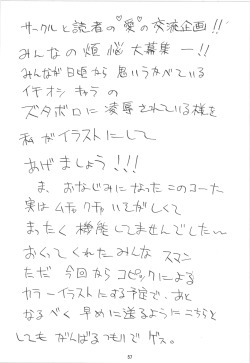 サークルと読者の♡愛♡の交流企画!!
みんなの煩悩大募集ー!!
みんなが日頃から思いうかべている
イチオシキャラの
ズタボロに凌辱されている様を
私がイラストにして
あげましょう!!!
ま、おなじみになったこのコーナー
実はムチャクチャいそがしくて
まったく機能してませんでしたー
おくってくれたみんなスマン
ただ今回からコピックによる
カラーイラストにする予定で、あと
なるべく早めに送るようにこちらと
してもがんばるつもりでゲス。
57